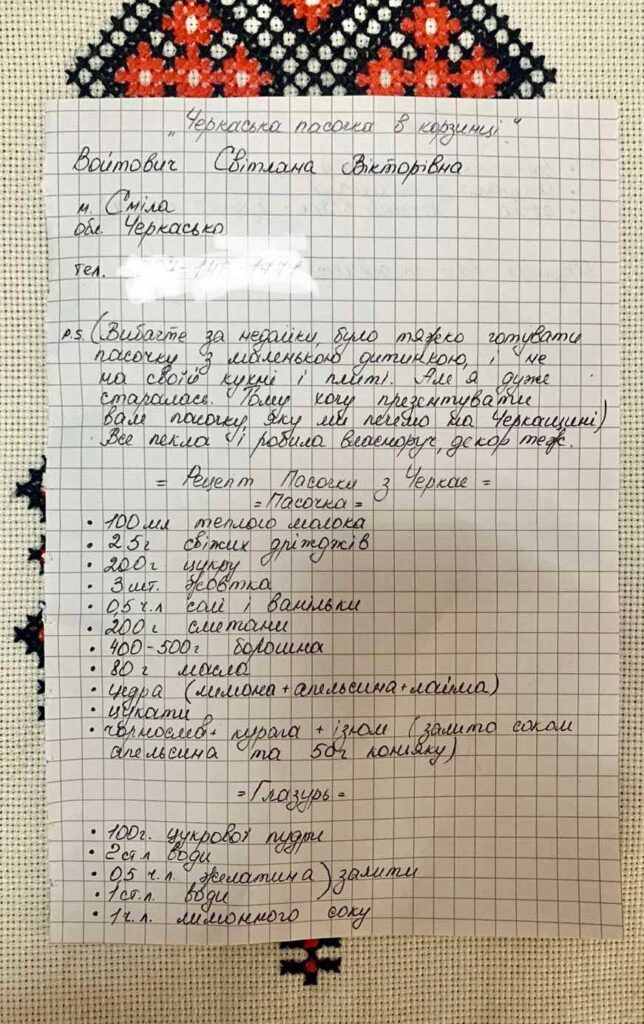 „Черкаська пасочка в корзинці“
Войтович Світлана Вікторівна
м. Сміла
обл. Черкасько
тел.
P.S. (Вибачте за недоліки, було тяжко готувати
пасочку з маленькою дитинкою, і не
на своїй кухні і плиті. Але я дуже
старалась. Тому хочу презентувати
вам пасочку, яку ми печемо на Черкащині)
Все пекла і робила власноруч, декор теж.
= Рецепт Пасочки з Черкас =
= Пасочка =
• 100 мл теплого молока
• 25 г свіжих дріжджів
• 200 г цукру
• 3 шт. жовтка
• 0,5 ч.л солі і ванільки
• 200 г сметани
• 400-500 г борошна
• 80 г масла
• цедра (лимона + апельсина + лайма)
• цукати
• чорнослив + курага + ізюм (залито соком
апельсина та 50 г коньяку)
= Глазурь =
• 100 г. цукрової пудри
• 2 ст.л води
• 0,5 ч.л. желатина ) залити
• 1 ст.л. води
• 1 ч.л. лимонного соку